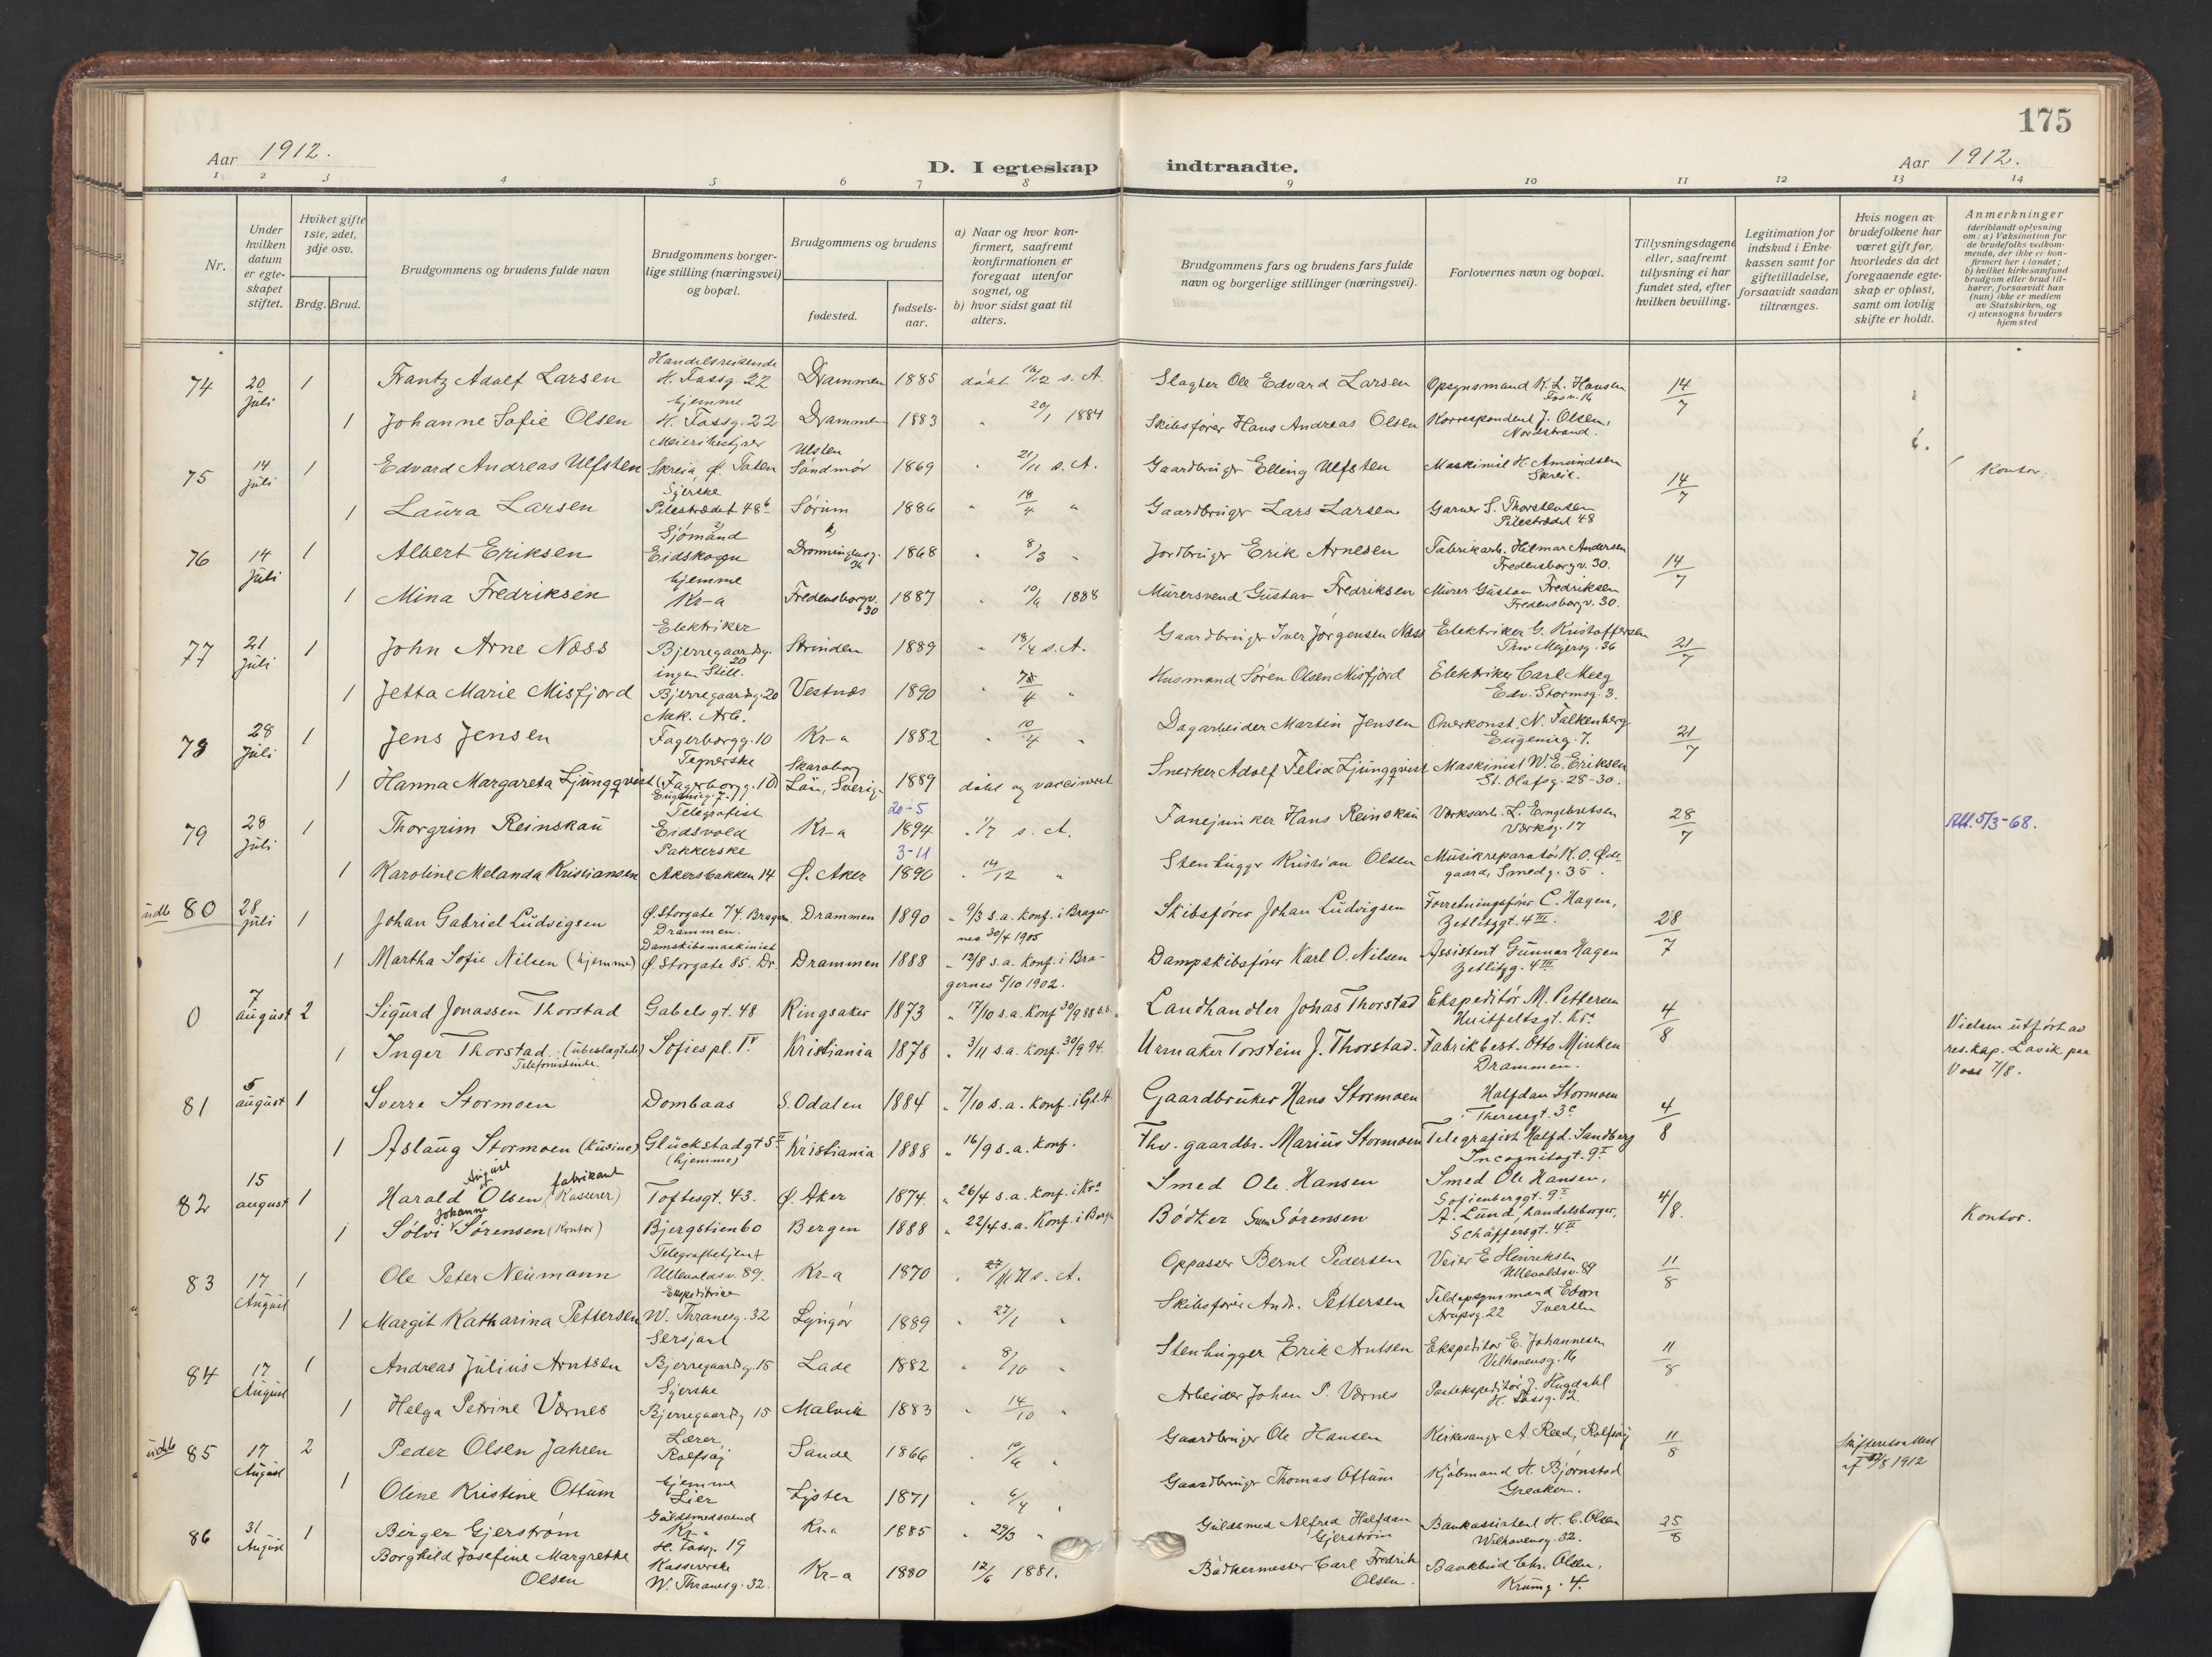 175
Aar 1912.
D. I egteskap indtraadte.
Aar 1912.
1 2 3 4 5 6 7 8 9 10 11 12 13 14
Nr.
Under hvilken datum er egteskapet stiftet.
Hviket gifte 1ste, 2det, 3dje osv.
Brdg. Brud.
Brudgommens og brudens fulde navn
Brudgommens borgerlige stilling (næringsvei) og bopæl.
Brudgommens og brudens
fødested.
fødselsaar.
a) Naar og hvor konfirmert, saafremt konfirmationen er foregaat utenfor sognet, og
b) hvor sidst gaat til alters.
Brudgommens fars og brudens fars fulde navn og borgerlige stillinger (næringsvei).
Forlovernes navn og bopæl.
Tillysningsdagene eller, saafremt tillysning ei har fundet sted, efter hvilken bevilling.
Legitimation for indskud i Enkekassen samt for giftetilladelse, forsaavidt saadan tiltrænges.
Hvis nogen av brudefolkene har været gift før, hvorledes da det foregaaende egteskap er opløst, samt om lovlig skifte er holdt.
Anmerkninger
(deriblandt oplysning om: a) Vaksination for de brudefolks vedkommende, der ikke er konfirmert her i landet; b) hvilket kirkesamfund brudgom eller brud tilhører, forsaavidt han (hun) ikke er medlem av Statskirken, og c) utensogns bruders hjemsted
74 20 Juli 1 Frantz Adolf Larsen Handelsreisende H. Tassg. 22 Drammen 1885 døbt 16/12 s. A. Slagter Ole Edvard Larsen Opsynsmand K. L. Hansen Fosv. 16 14/7
1 Johanne Sofie Olsen hjemme H. Tassg. 22 Drammen 1883 " 20/1 1884 Skibsfører Hans Andreas Olsen Korrespondent J. Olsen, Nordstrand.
75 14 Juli 1 Edvard Andreas Ulfsten Meieribestyrer Skreia Ø. Toten Ulsten Søndmør 1869 " 21/11 s. A. Gaardbruger Elling Ulfsten Maskinist H. Amundsen Skreia. 14/7 Kontor.
1 Laura Larsen Syerske Pilestrædet 48b Sørum 1886 " 18/4 " Gaardbruger Lars Larsen Garver S. Thorstensen Pilestrædet 48
76 14 Juli 1 Albert Eriksen Sjømand Eidskogen Dronningensg. 36 1868 " 8/3 " Jordbruger Erik Arnesen Fabrikarb. Hilmar Andersen Fredensborgv. 30. 14/7
1 Mina Fredriksen hjemme Kr-a Fredensborgv. 30 1887 " 1888 Murersvend Gustav Fredriksen Murer Gustav Fredriksen Fredensborgv. 30.
77 21 Juli 1 John Arne Næss Elektriker Bjerregaardsg. 20 Strinden 1889 " 18/4 s. A. Gaardbruger Iver Jørgensen Næss Elektriker G. Kristoffersen Thv Meyersg. 36 21/7
1 Jetta Marie Misfjord ingen Still. Bjerregaardsg. 20 Vestnæs 1890 " Husmand Søren Olsen Misfjord Elektriker Carl Meeg Edv. Stormsg. 3.
78 28 Juli 1 Jens Jensen Mek. Arb. Fagerborgg. 10 Kr-a 1882 " 10/4 " Dagarbeider Martin Jensen Overkonst. N. Falkenberg Eugeniag. 7. 21/7
1 Hanna Margareta Ljungqvist Tegnerske (Fagerborgg. 10) Eugeniag. 7. Skaraborg Län, Sverig. 1889 døbt og vaccineret Snerker Adolf Felix Ljungqvist Maskinist W. E. Eriksen St. Olafsg. 28-30.
79 28 Juli 1 Thorgrim Reinskau Telegrafist Eidsvold Kr-a 20-5 1894 " 1/7 s. A. Fanejunker Hans Reinskau Værksarb. L. Engebretsen Værksg. 17 28/7 Att. 5/3-68.
1 Karoline Melanda Kristiansen Pakkerske Akersbakken 14 Ø. Aker 3-11 1890 " 14/12 " Stenhugger Kristian Olsen Musikreparatør K. O. Ødegaard, Smedg. 35.
udb 80 28 Juli 1 Johan Gabriel Ludvigsen Ø. Storgate 74. Bragern. Drammen. Drammen 1890 " 9/3 s.a. Konf. i Bragernes 30/4 1905 Skibsfører Johan Ludvigsen Forretningsfører C. Hagen, Zetlitzgt. 4 III. 28/7
1 Martha Sofie Nilsen (hjemme) Damskibsmaskinist Ø. Storgate 85. Dr. Drammen 1888 " 12/8 s.a. Konf. i Bragernes 5/10 1902. Dampskibsfører Karl O. Nilsen Assistent Gunnar Hagen Zetlitzg. 4 III
0 7 august 2 Sigurd Jonassen Thorstad Gabelsgt. 48 Ringsaker 1873 " 17/10 s.a. Konf 30/9 88 s.s. Landhandler Johas Thorstad Ekspeditør M. Pettersen Huitfeltsgt. Kra 4/8 Vielsen utført av res. kap. Lavik paa Voss 7/8.
1 Inger Thorstad (ubeslagtede) Telefonistinde Sofiespl. 1 V Kristiania 1878 " 3/11 s.a. Konf. 30/9 94. Urmaker Torstein J. Thorstad. Fabrikbest. Otto Minken Drammen.
81 5 august 1 Sverre Stormoen Dombaas S. Odalen 1884 " 7/10 s.a. Konf. i Gl. A Gaardbruker Hans Stormoen Halfdan Stormoen Theresegt. 3c 4/8
1 Aslaug Stormoen (Kusine) Glückstadgt 5 II (hjemme) Kristiania 1888 " 16/9 s.a. Konf. Fhv. gaardbr. Marius Stormoen Telegrafist Halfd. Sandberg Incognitogt. 9 I
82 15 august 1 Harald August Olsen fabrikant (Kasserer) Toftesgt. 43. Ø. Aker 1874 " 26/4 s.a. Konf. i Kra Smed Ole Hansen Smed Ole Hansen, Sofienberggt. 9 I 4/8.
1 Sølvi Johanne Sørensen (Kontor) Bjergstien 60 Bergen 1888 " 22/4 s.a. Konf. i Berg. Bødker Sørensen A. Lund, handelsborger, Schäffersgt. 4 II Kontor.
83 17 August 1 Ole Peter Neumann Telegrafbetjent Ullevoldsv. 89. Kr-a 1870 " 27/11 71 s. A. Oppasser Bernt Pedersen Veier E Henriksen Ullevoldsv. 89 11/8
1 Margit Katharina Pettersen Ekspeditrice W. Thranesg. 32 Lyngør 1889 " 27/1 " Skibsfører Andr. Pettersen Teldopsynsmand Edvin Iversen Arupsg. 22
84 17 August 1 Andreas Julius Arntsen Sersjant Bjerregaardsg. 15 Lade 1882 " 8/10 " Stenhugger Erik Arntsen Ekspeditør E. Johannesen Velhavensg. 16 11/8
1 Helga Petrine Værnes Syerske Bjerregaardsg 15 Malvik 1883 " 14/10 " Arbeider Johan P. Værnes Postekspeditør J. Hugdahl H. Tassg. 12.
udb 85 17 August 2 Peder Olsen Jahren Lærer Rolfsøj Sande 1866 " " Gaardbruger Ole Hansen Kirkesanger A. Reed, Rolfsøj 11/8 Skifteretsattest af 8 1912
1 Oline Kristine Ottum hjemme Lier Lyster 1871 " 6/4 " Gaardbruger Thomas Ottum Kjøbmand H. Bjørnstad Greaker.
86 31 August 1 Birger Gjerstrøm Guldsmedsvend Kr-a H. Tassg. 19 Kr-a 1885 " 29/3 " Guldsmed Alfred Halfdan Gjerstrøm Bankassistent H. C. Olsen Wilhavensg. 32. 25/8
Borghild Josefine Margrethe Olsen Kassererske W. Thranesg. 32. Kr-a 1880 12/6 1881. Bødkermester Carl Fredrik Olsen. Bankbud Chr. Olsen, Krumg. 4.